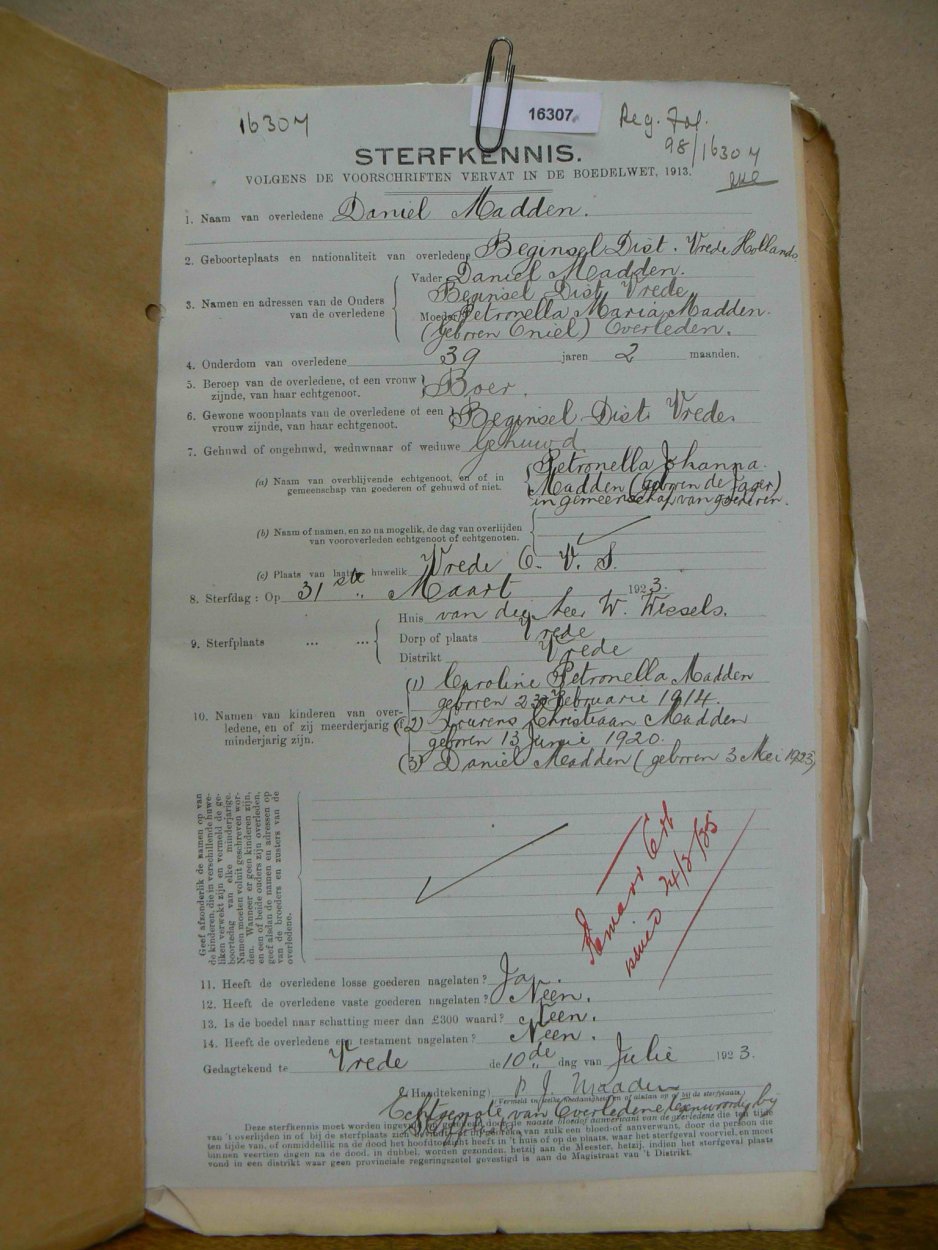 16307
16307
Reg. Fol.
98/16307
STERFKENNIS.
VOLGENS DE VOORSCHRIFTEN VERVAT IN DE BOEDELWET, 1913.
1. Naam van overledene Daniel Madden.
2. Geboorteplaats en nationaliteit van overledene Beginsel Dist. Vrede Hollands
3. Namen en adressen van de Ouders van de overledene
Vader Daniel Madden.
Beginsel Dist. Vrede
Moeder Petronella Maria Madden.
(geboren Oniel) Overleden.
4. Ouderdom van overledene 39 jaren 2 maanden.
5. Beroep van de overledene, of een vrouw
zijnde, van haar echtgenoot. Boer.
6. Gewone woonplaats van de overledene of een
vrouw zijnde, van haar echtgenoot. Beginsel Dist. Vrede.
7. Gehuwd of ongehuwd, weduwnaar of weduwe Gehuwd
(a) Naam van overblijvende echtgenoot, en of in
gemeenschap van goederen of gehuwd of niet.
Petronella Johanna
Madden (geboren de Jager)
in gemeenschap van goederen.
(b) Naam of namen, en zo na mogelik, de dag van overlijden
van vooroverleden echtgenoot of echtgenoten.
(c) Plaats van laatste huwelik Vrede O. V. S.
8. Sterfdag : Op 31ste " Maart 1923.
9. Sterfplaats ... ...
Huis van den heer W. Wessels.
Dorp of plaats Vrede
Distrikt Vrede
10. Namen van kinderen van over-
ledene, en of zij meerderjarig of
minderjarig zijn.
(1) Caroline Petronella Madden
geboren 23 Februarie 1914.
(2) Lourens Christiaan Madden
geboren 13 Junie 1920.
(3) Daniel Madden (geboren 3 Mei 1923)
Geef afzonderlik de namen op van
de kinderen, die in verschillende huwe-
liken verwekt zijn en vermeld de ge-
boortedag van elke minderjarige.
Namen moeten voluit geschreven wor-
den. Wanneer er geen kinderen zijn,
en een of beide ouders zijn overleden,
geef alsdan de namen en adressen op
van de broeders en zusters van de
overledene.
24/8/35
11. Heeft de overledene losse goederen nagelaten? Ja.
12. Heeft de overledene vaste goederen nagelaten? Neen.
13. Is de boedel naar schatting meer dan £300 waard? Neen.
14. Heeft de overledene een testament nagelaten? Neen.
Gedagtekend te Vrede de 10de dag van Julie 1923.
(Handtekening) P J Madden
Echtgenote van Overledene tegenwoordig bij
Deze sterfkennis moet worden
van 't overlijden in of bij de sterfplaats
ten tijde van, of onmiddellik na de dood het hoofdtoezicht heeft in 't huis of op de plaats, waar het sterfgeval voorviel, en moet
binnen veertien dagen na de dood, in dubbel, worden gezonden, hetzij aan de Meester, hetzij, indien het sterfgeval plaats
vond in een distrikt waar geen provinciale regeringszetel gevestigd is aan de Magistraat van 't Distrikt.